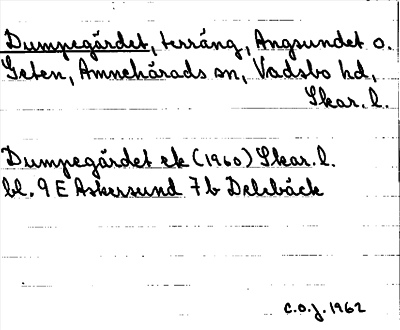 Dumpegärdet, terräng, Ängsundet o.
Geten, Amnehärads sn, Vadsbo hd,
Skar. l.
Dumpegärdet ek (1960) Skar. l.
bl. 9 E Askersund 7 b Delebäck
C.O.J. 1962